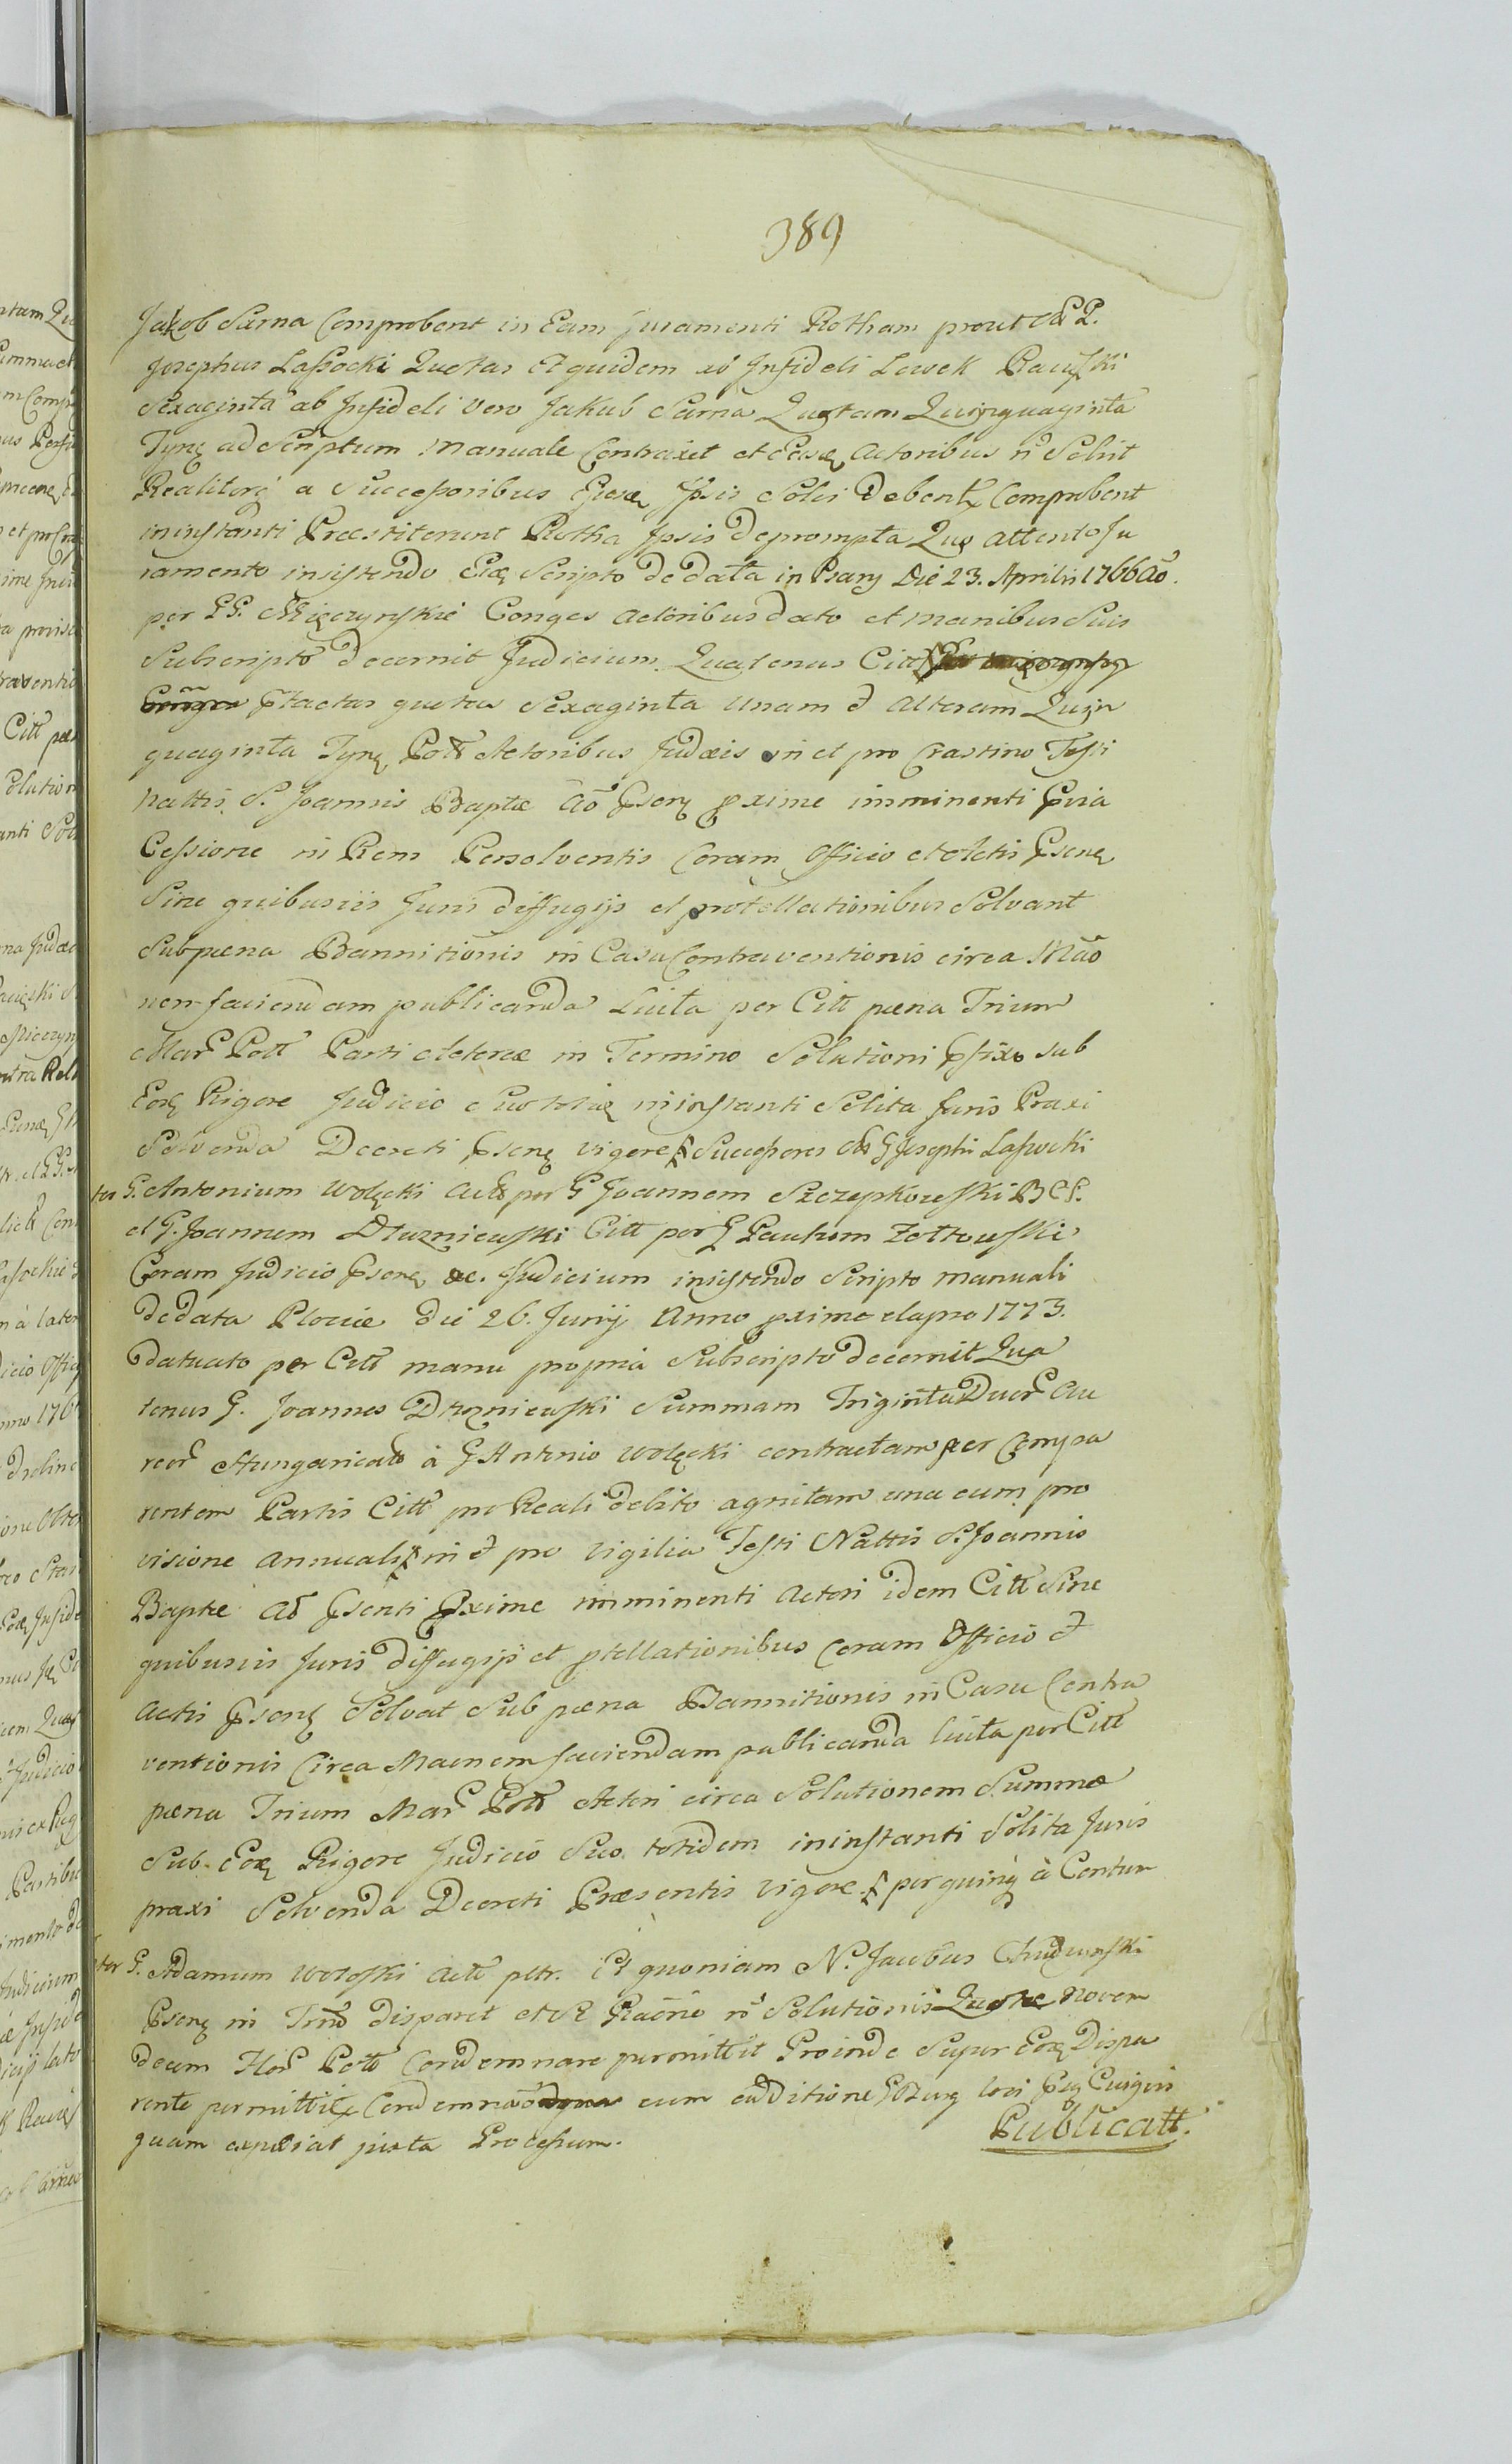 389
Jakob Sarna Comprobent in Eam juramenti Rotham prout olim G.
Josephus Lassocki Quotas Et quidem ab Infideli Lewek Raciąski
Sexaginta ab Infideli vero Jakub Sarna Quotam Quinquaginta
Tynf ad Scriptum Manuale Contraxit et Easdem Actoribus non Solvit
Realiterque a Successoribus Ejusdem Ipsis Solvi Debentur Comprobent
in instanti Præstiterunt Rotha Ipsis deprompta Quo attento Ju
ramento insistendo Eidem Scripto de data in Psary Die 23. Aprilis 1766 Ao.
per GG. Mięczynskie Conges Actoribus dato et manibus Suis
Subscripto decernit Judicium Quatenus Citt
Ptactas quotas Sexaginta Unam et Alteram Quin
quaginta Tynf Poll Actoribus Judæis in et pro Crastino Festi
Nattis S. Joannis Baptæ Ao Psenq pxime imminenti Pvia
Cessione in Rem Persolventis Coram Officio et Actis Psenq
Sine quibusvis Juris diffugijs et protellationibus Solvant
Sub pæna Bannitionis in Casu Contraventionis circa Mão
nem faciendam publicanda Luita per Citt pæna Trium
Mar Poll Parti Actoreæ in Termino Solutioni Pfixo sub
Eodem Rigore Judicio Suo totidem in instanti Solita Juris Praxi
Solvenda Decreti Psenq vigore Successores olim G Josephi Lassocki
ter G. Antonium Wolęcki Act per G Joannem Szczepkowski B C P.
et G. Joannem Dłuzniewski Citt per G Paulum Zołtowski
Coram Judicio Psenq &c. Judicium insistendo Scripto manuali
de data Plociæ die 26. Junij Anno pxime elapso 1773.
datuato per Citt manu propria Subscripto decernit Qua
tenus G. Joannes Dłuzniewski Summam Triginta Duor Au
reor Hungaricalo à G Antonio Wolęcki contractam per Compa
rentem Partis Citt pro Reali debito agnitam una cum pro
visione annuali in et pro Vigilia Festi Nattis S. Joannis
Baptæ Ao Psenti Pxime imminenti Actori idem Citt Sine
quibusvis Juris diffugijs et ptellationibus Coram Officio et
Actis Psenq Solvat Sub pæna Bannitionis in Casu Contra
ventionis Circa Maonem faciendam publicanda luita per Citt
pæna Trium Mar Poll Actori circa Solutionem Summæ
Sub Eodem Rigore Judicio Suo totidem in instanti Solita Juris
praxi Solvenda Decreti Præsentis vigore per quinq à Centum
ter G. Adamum Woloski Act pttr. Et quoniam N. Jacobus Chudzynski
Psenq in Tmo disparet et Se Raone non Solutionis Quotæ Novem
decim Flor Poll Condemnare permittit Proinde Super Eodem Dispa
rente permittitur Condemnao cum additione loci Cuigin
quam expediat juxta Processum.
Publicatt.